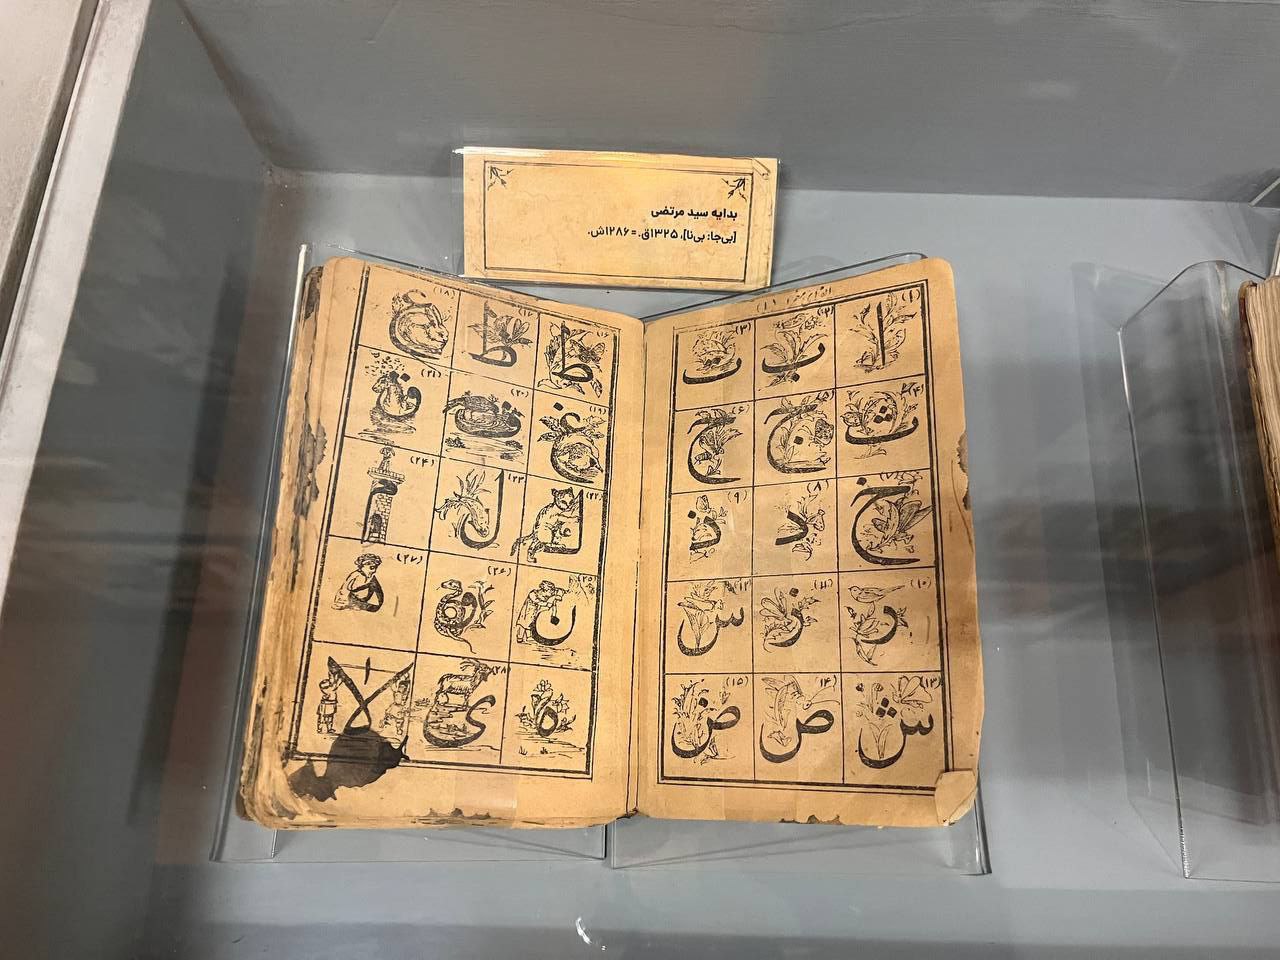 بدایه سید مرتضی
[بی‌جا: بی‌نا]، ۱۳۲۵ق. = ۱۲۸۶ش.
(۱) ا (۲) ب (۳) ت
(۴) ث (۵) ج (۶) ح
(۷) خ (۸) د (۹) ذ
(۱۰) ر (۱۱) ز (۱۲) س
(۱۳) ش (۱۴) ص (۱۵) ض
(۱۶) ط (۱۷) ظ (۱۸) ع
(۱۹) غ (۲۰) ف (۲۱) ق
(۲۲) ك (۲۳) ل (۲۴) م
(۲۵) ن (۲۶) و (۲۷) ه
ة (۲۸) ی لا